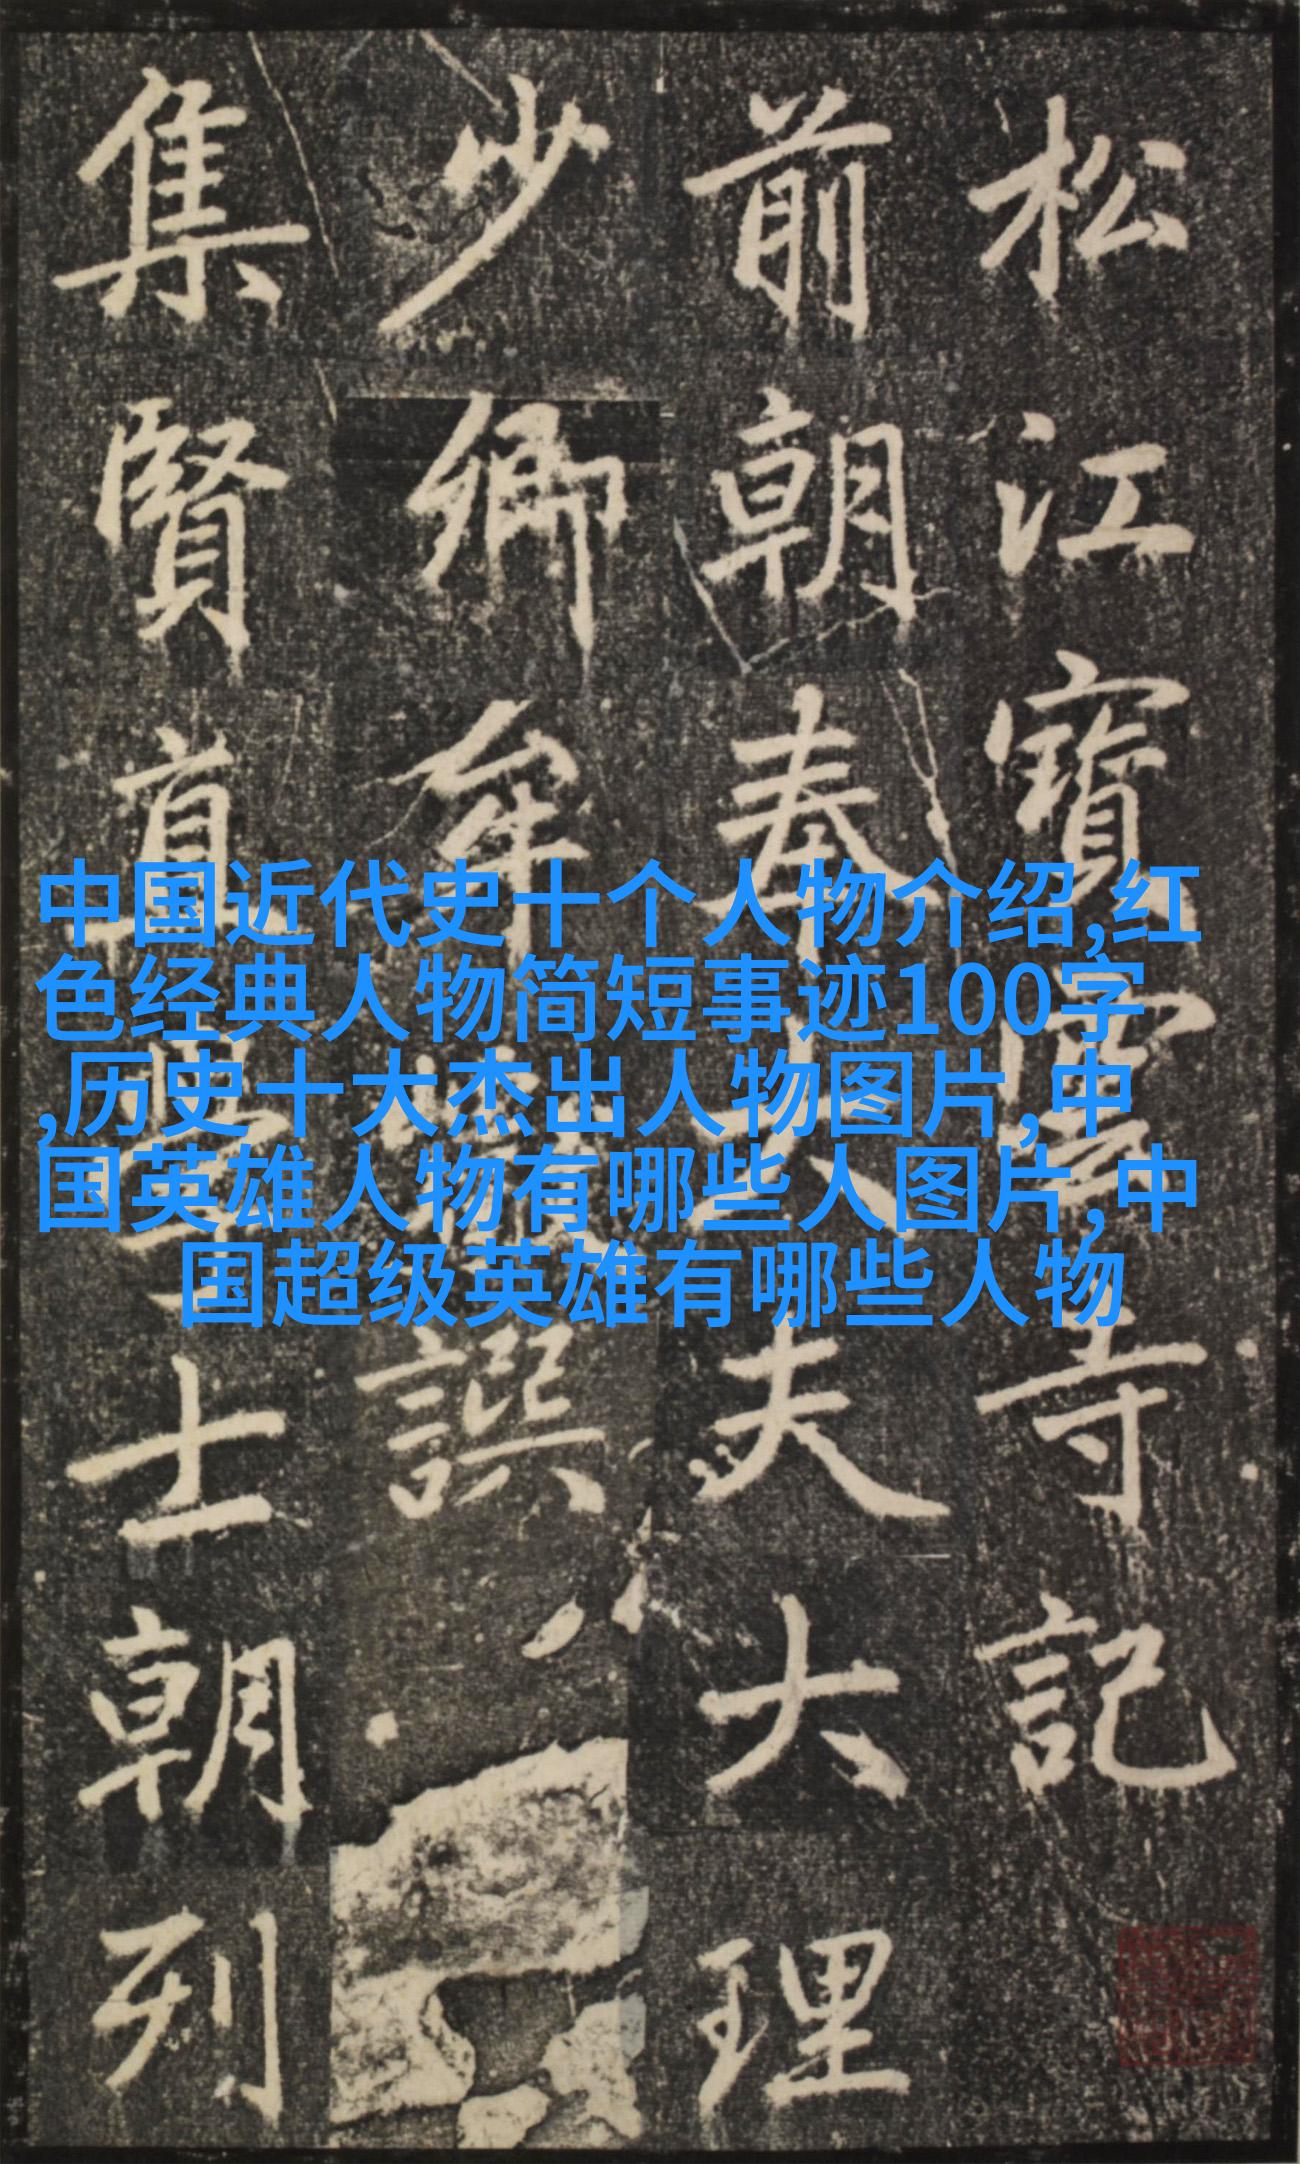 松江寶雲寺記
前朝奉大夫大理
少卿牟譔
集賢直學士朝列
中国近代史十个人物介绍,红
色经典人物简短事迹100字
,历史十大杰出人物图片,中
国英雄人物有哪些人图片,中
国超级英雄有哪些人物